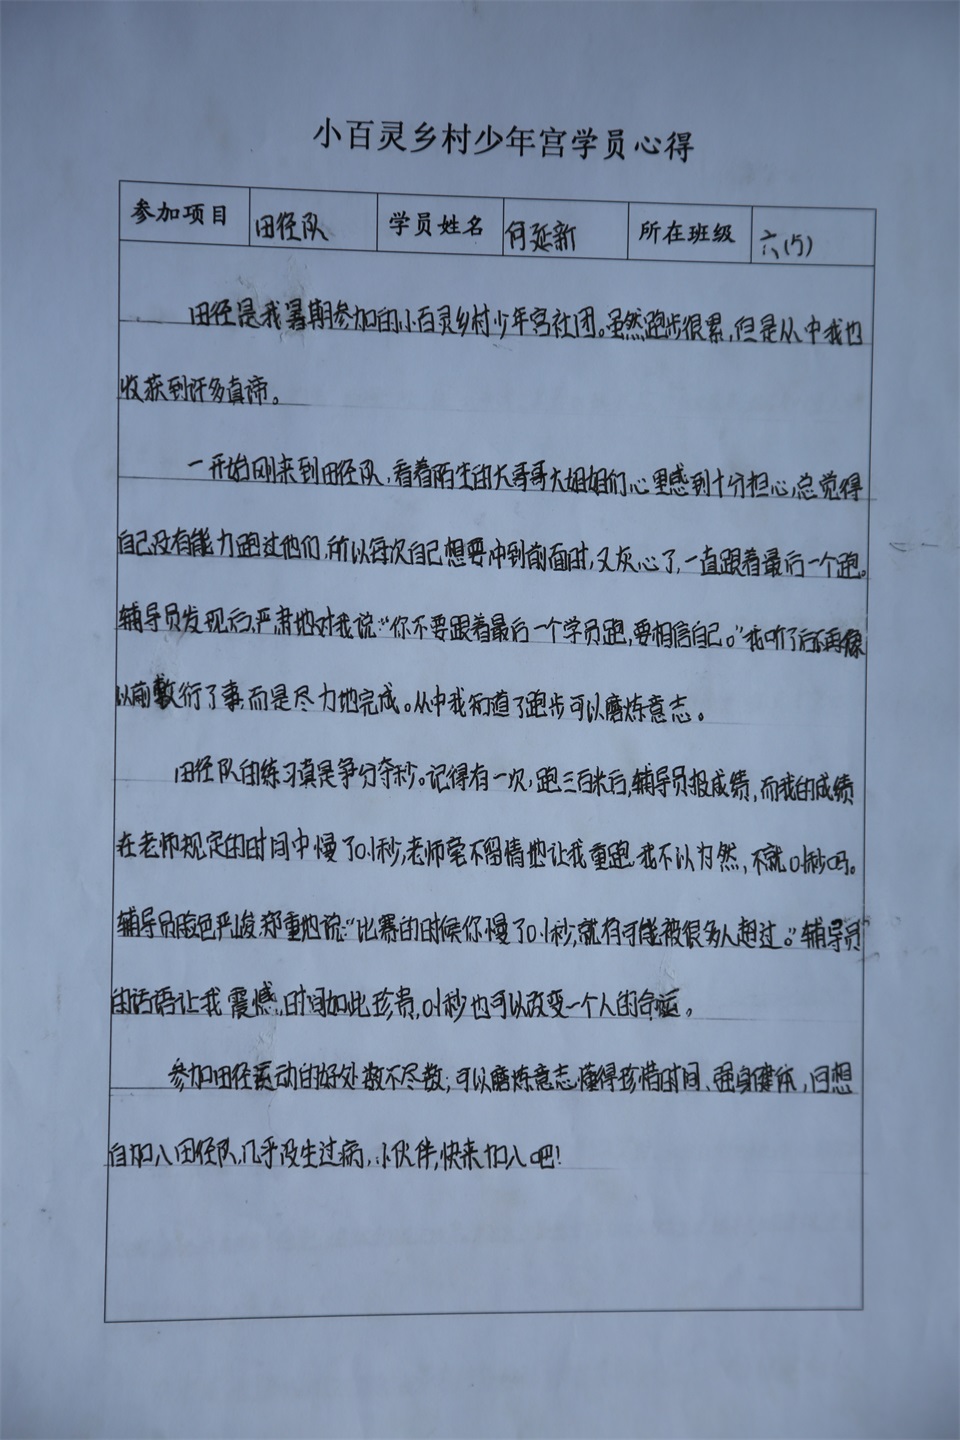 小百灵乡村少年宫学员心得
参加项目 田径队 学员姓名 何延新 所在班级 六(5)
田径是我暑期参加的小百灵乡村少年宫社团。虽然跑步很累,但是从中我也
收获到许多真谛。
一开始刚来到田径队,看着陌生的大哥哥大姐姐们,心里感到十分担心,总觉得
自己没有能力跑过他们,所以每次自己想要冲到前面时,又灰心了,一直跟着最后一个跑。
辅导员发现后,严肃地对我说:“你不要跟着最后一个学员跑,要相信自己。”我听了后不再像
以前敷衍了事,而是尽力地完成。从中我知道了跑步可以磨炼意志。
田径队的练习真是争分夺秒。记得有一次,跑三百米后,辅导员报成绩,而我的成绩
在老师规定的时间中慢了0.1秒,老师毫不留情地让我重跑,我不以为然,不就0.1秒吗。
辅导员脸色严峻,郑重地说:“比赛的时候你慢了0.1秒,就有可能被很多人超过。”辅导员
的话语让我震撼,时间如此珍贵,0.1秒也可以改变一个人的命运。
参加田径运动的好处数不尽数,可以磨炼意志,懂得珍惜时间、强身健体,回想
自加入田径队,几乎没生过病,小伙伴,快来加入吧!